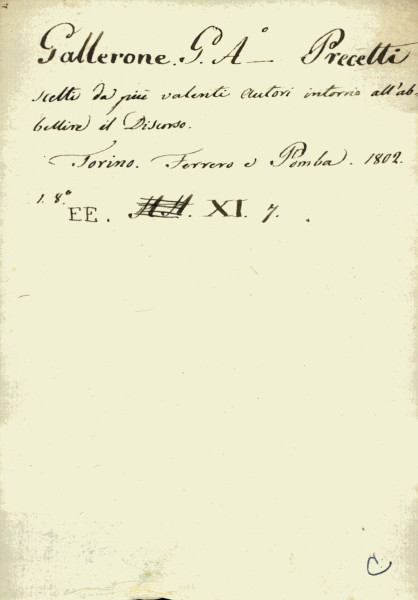 Gallerone. G. A.° — Precetti
scelti da più valenti autori intorno all'ab-
bellire il Discorso.
Torino. Ferrero e Pomba. 1802.
1. 8.°
EE. XI 7. .
C